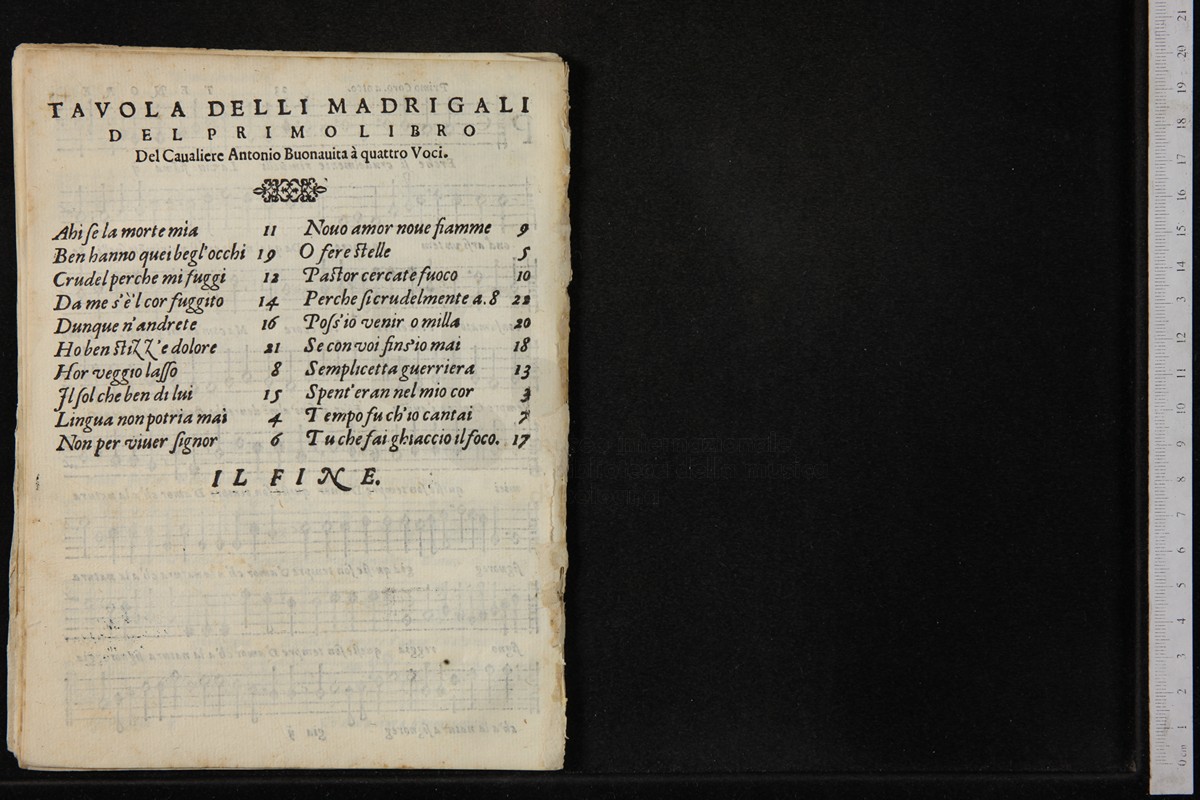 TAVOLA DELLI MADRIGALI
DEL PRIMO LIBRO
Del Caualiere Antonio Buonauita à quattro Voci.
Ahi se la morte mia 11
Ben hanno quei begl'occhi 19
Crudel perche mi fuggi 12
Da me s'è'l cor fuggito 14
Dunque n'andrete 16
Ho ben stiZZ'e dolore 21
Hor veggio lasso 8
Il sol che ben di lui 15
Lingua non potria mai 4
Non per viuer signor 6
Nouo amor noue fiamme 9
O fere stelle 5
Pastor cercate fuoco 10
Perche si crudelmente a. 8 22
Poss'io venir o milla 20
Se con voi fins'io mai 18
Semplicetta guerriera 13
Spent'eran nel mio cor 3
Tempo fu ch'io cantai 7
Tu che fai ghiaccio il foco. 17
IL FINE.
0 cm 1 2 3 4 5 6 7 8 9 10 11 12 13 14 15 16 17 18 19 20 21